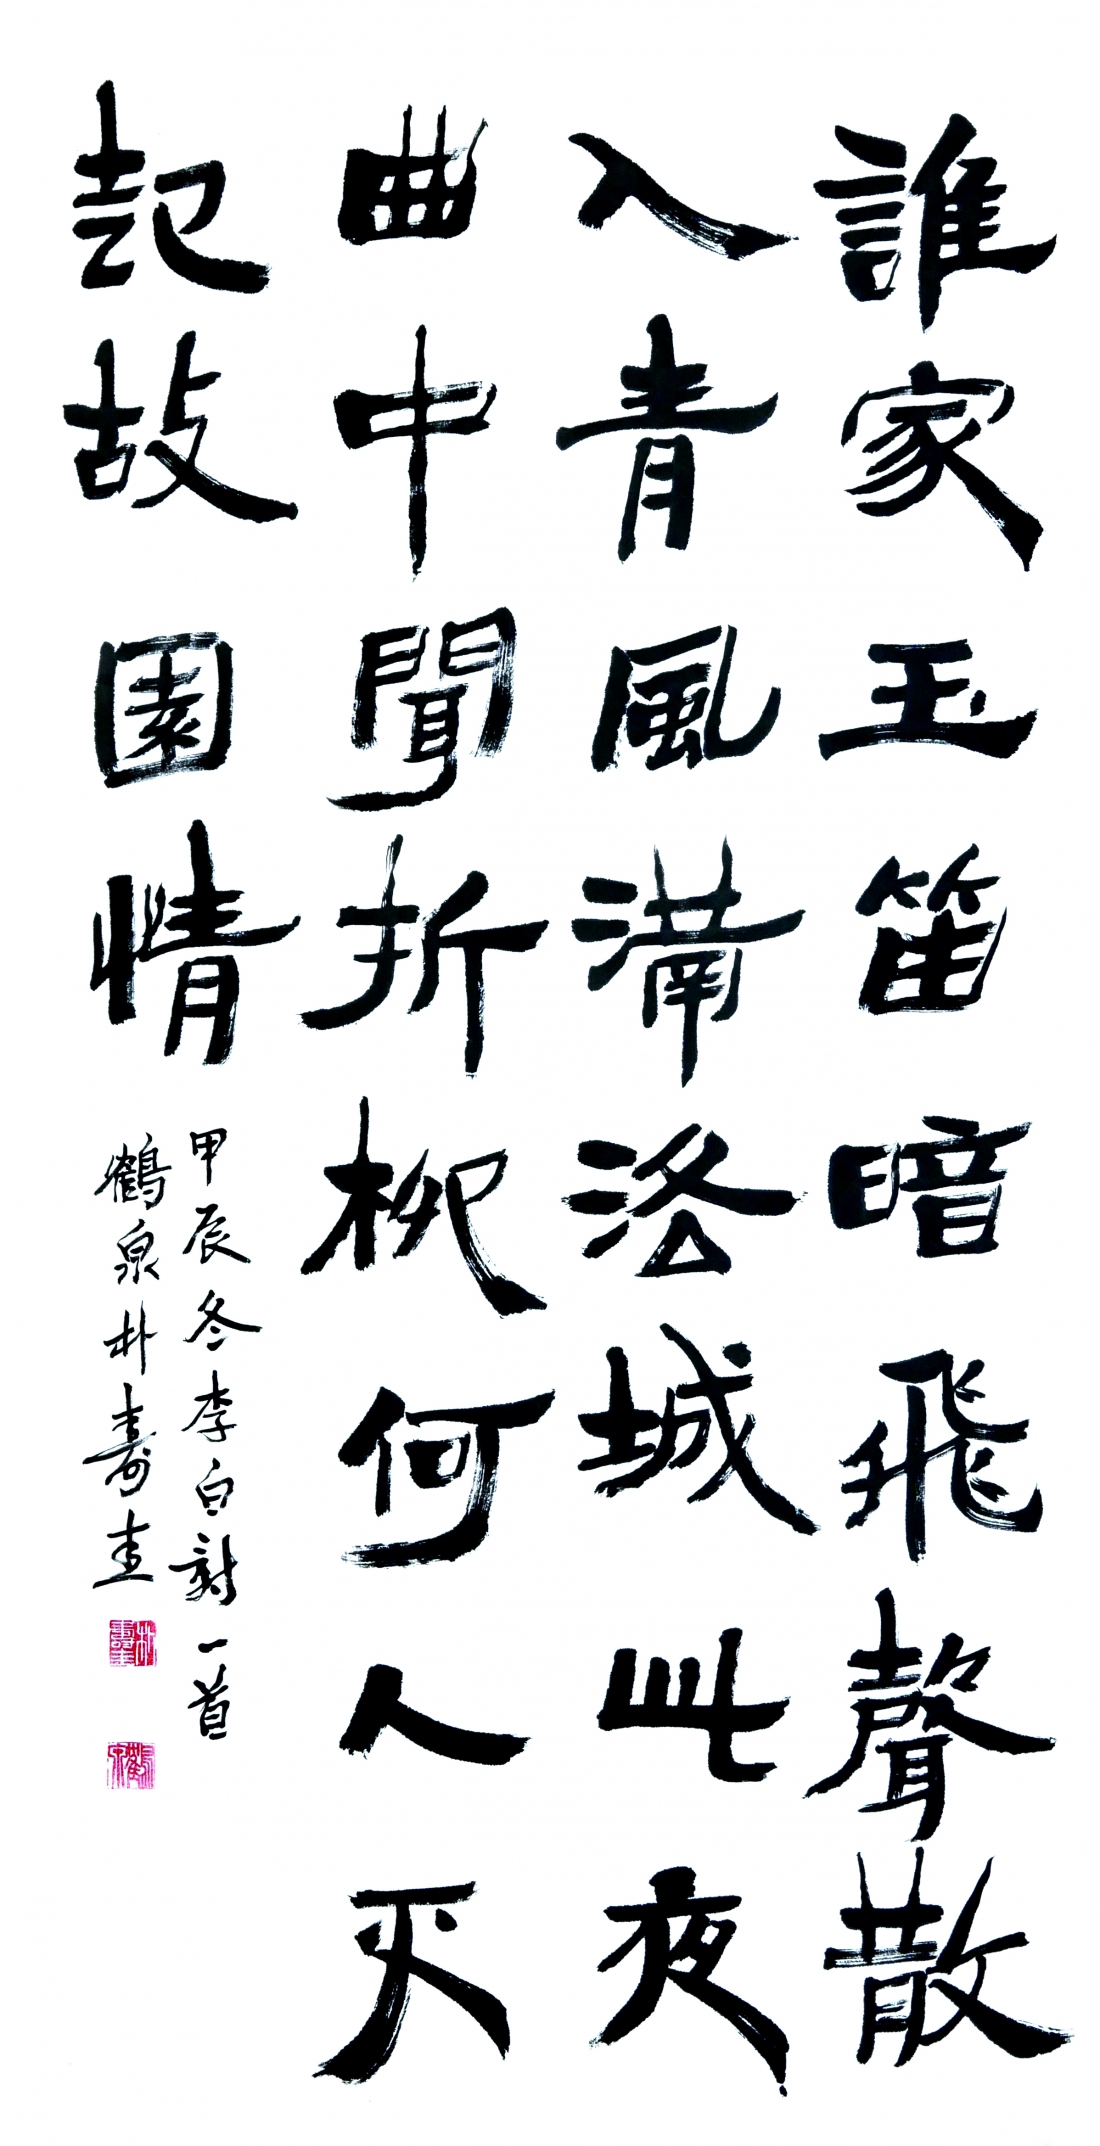 誰家玉笛暗飛聲散
入青風滿洛城此夜
曲中聞折柳何人不
起故園情
甲辰冬李白詩一首
鶴泉朴壽圭